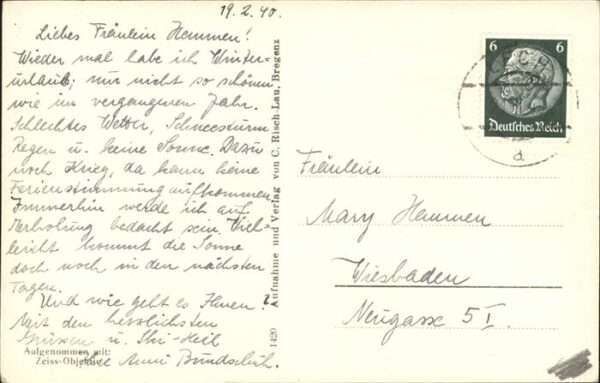 19.2.40.
Liebes Fräulein Hammen!
Wieder mal habe ich Winter-
urlaub; nur nicht so schönen
wie im vergangenen Jahr.
Schlechtes Wetter, Schneesturm
Regen u. keine Sonne. Dazu
noch Krieg, da kann keine
Ferienstimmung aufkommen.
Immerhin werde ich auf
Erholung bedacht sein. Viel-
leicht kommt die Sonne
doch noch in den nächsten
Tagen.
Und wie geht es Ihnen?
Mit den herzlichsten
Grüssen u. Ski-Heil
Ihre Anni Bundschuh.
Aufgenommen mit:
Zeiss-Objektiv
1420 Aufnahme und Verlag von C. Risch-Lau, Bregenz
6 6
Deutsches Reich
LECH
a
Fräulein
Mary Hammen
Wiesbaden
Neugasse 5 I.